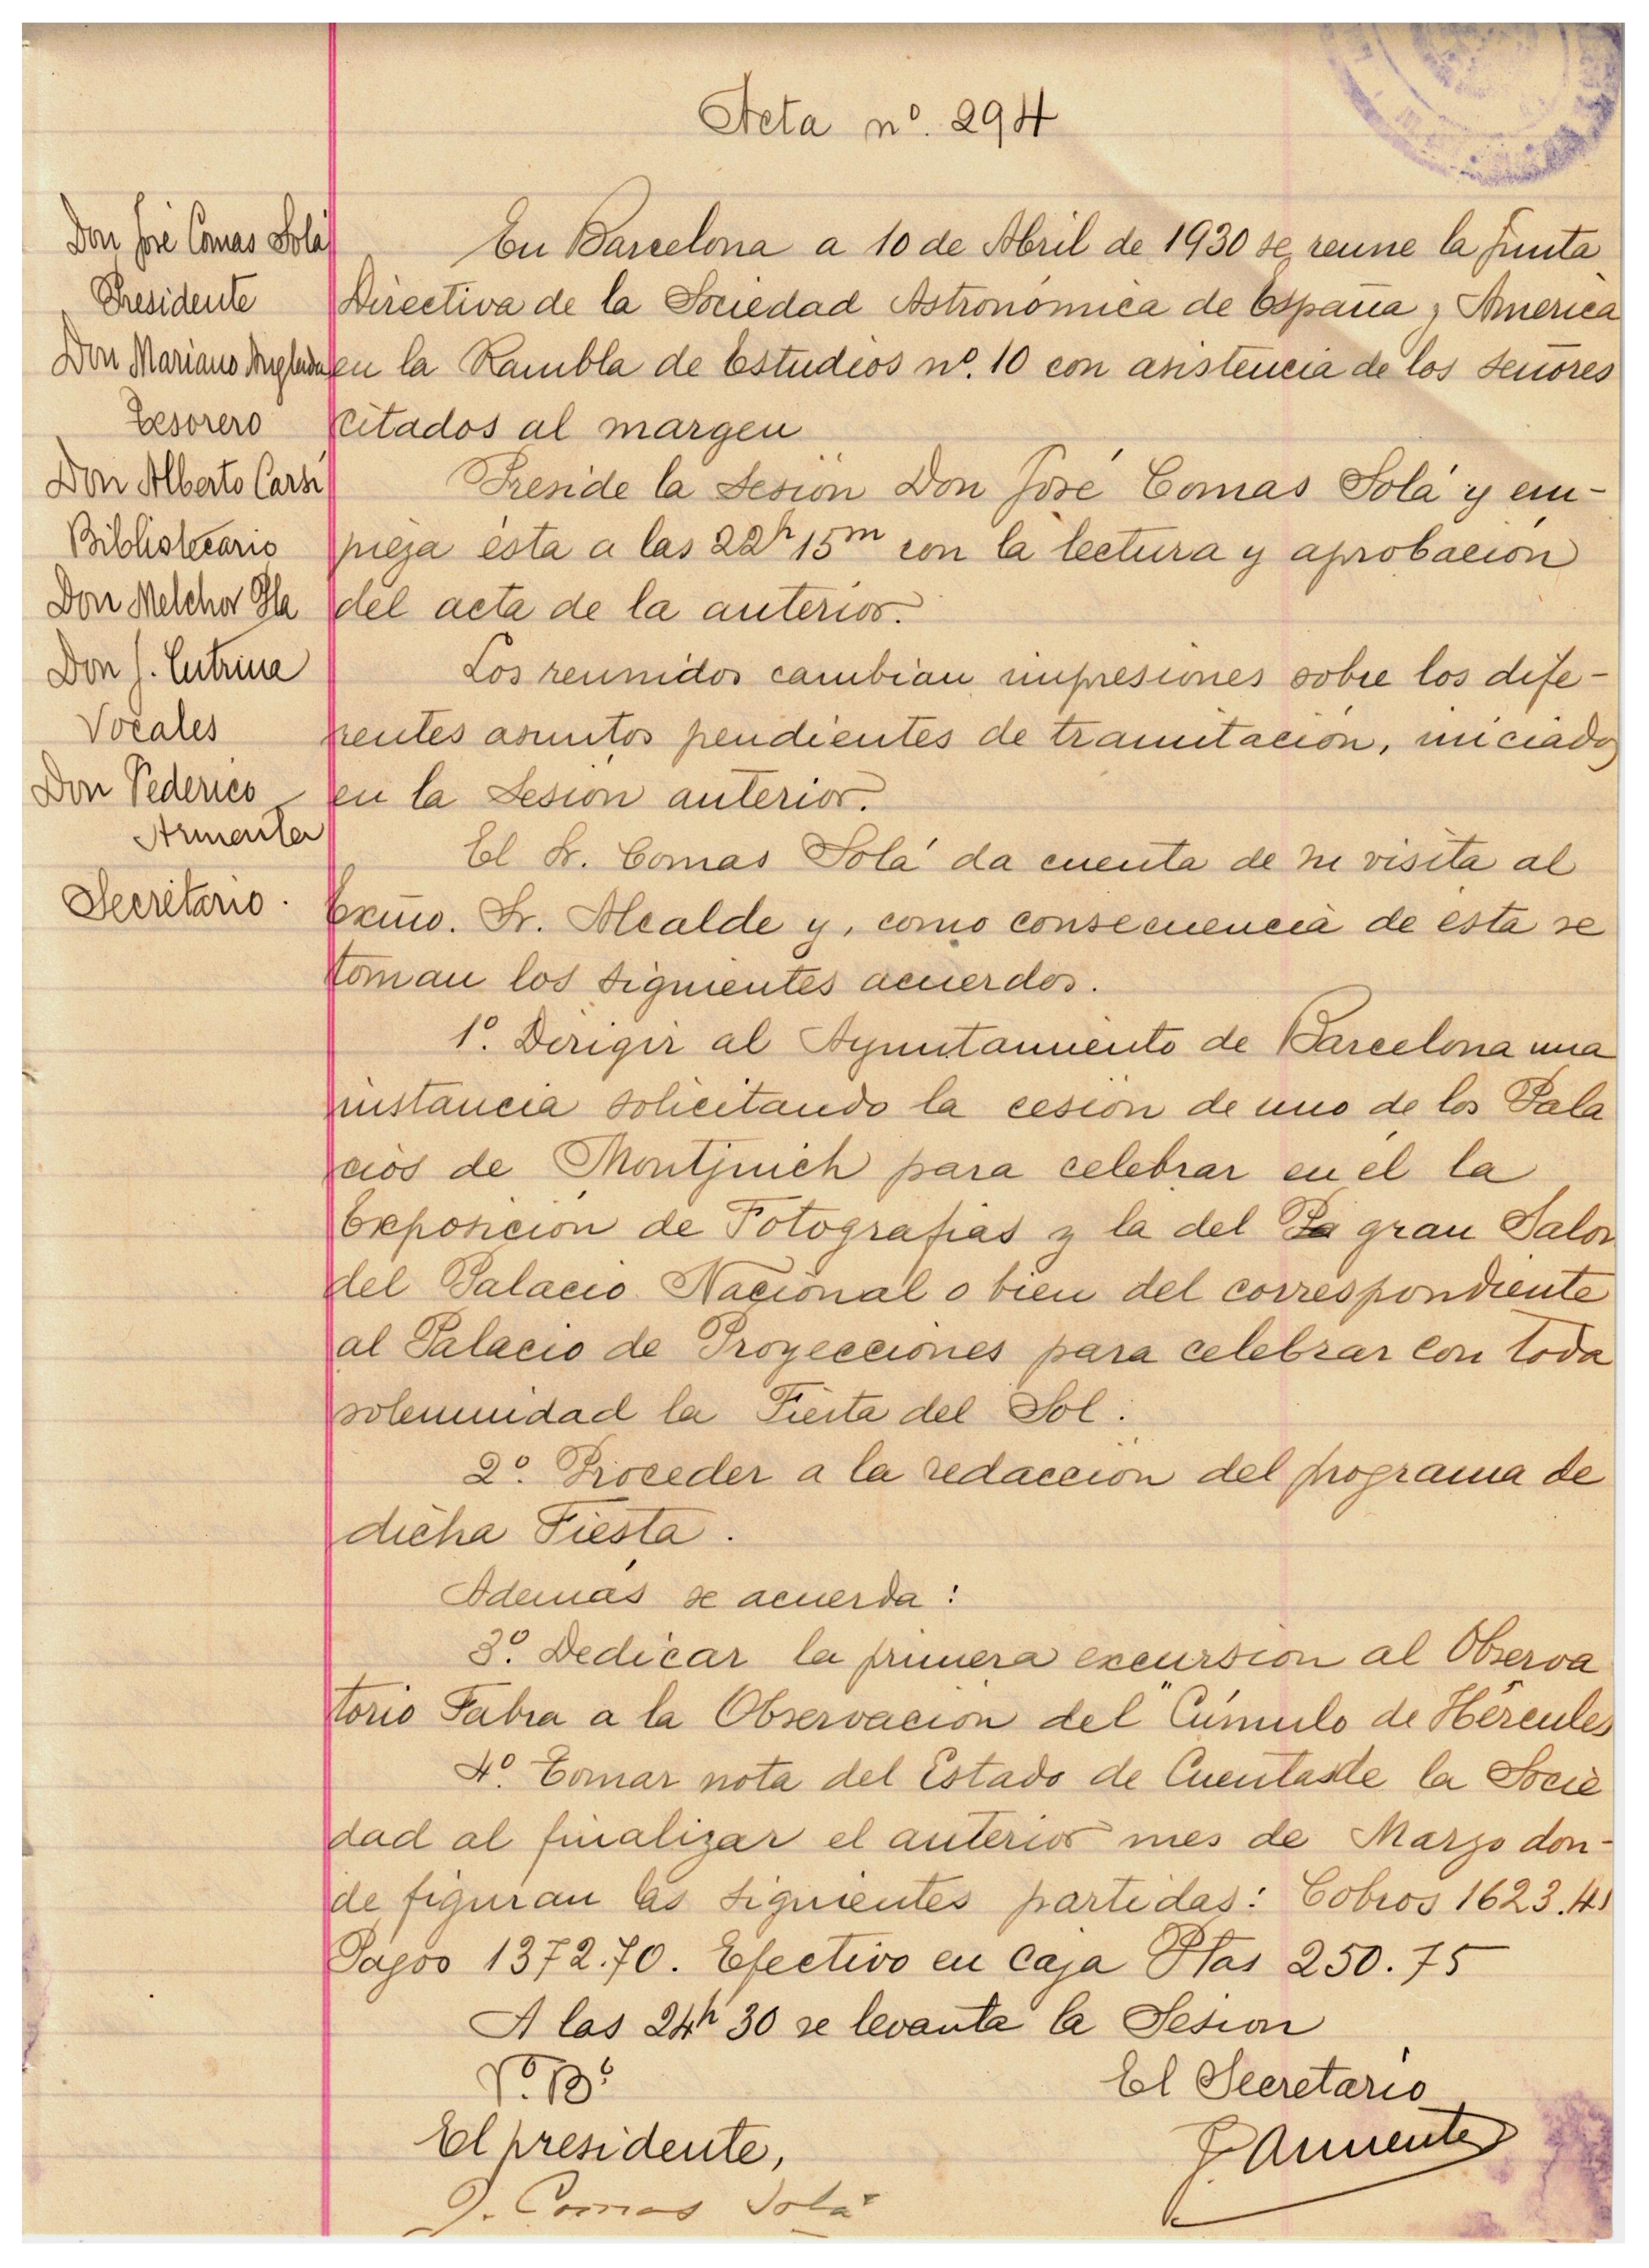 Acta nº. 294
Don José Comas Solá
Presidente
Don Mariano Anglada
Tesorero
Don Alberto Carsí
Bibliotecario
Don Melchor Pla
Don J. Cutrina
Vocales
Don Federico
Armenter
Secretario.
En Barcelona a 10 de Abril de 1930 se reune la Junta
Directiva de la Sociedad Astronómica de España y America
en la Rambla de Estudios nº. 10 con asistencia de los señores
citados al margen
Preside la sesión Don José Comas Solá y em-
pieza ésta a las 22h 15m con la lectura y aprobación
del acta de la anterior.
Los reunidos cambian impresiones sobre los dife-
rentes asuntos pendientes de tramitación, iniciados
en la sesión anterior.
El Sr. Comas Solá da cuenta de su visita al
Excmo. Sr. Alcalde y, como consecuencia de esta se
toman los siguientes acuerdos.
1º. Dirigir al Ayuntamiento de Barcelona una
instancia solicitando la cesión de uno de los Pala
cios de Montjuich para celebrar en él la
Exposición de Fotografias y la del Pa gran Salon
del Palacio Nacional o bien del correspondiente
al Palacio de Proyecciones para celebrar con toda
solemnidad la Fiesta del Sol.
2º. Proceder a la redacción del programa de
dicha Fiesta.
Además se acuerda:
3º. Dedicar la primera excursion al Observa
torio Fabra a la Observación del "Cúmulo de Hércules"
4º. Tomar nota del Estado de Cuentas de la Socie
dad al finalizar el anterior mes de Marzo don-
de figuran las siguientes partidas: Cobros 1623.45
Pagos 1372.70. Efectivo en caja Ptas 250.75
A las 24h 30 se levanta la Sesion
Vº. Bº
El Secretario
El presidente,
F. Armenter
J. Comas Solá